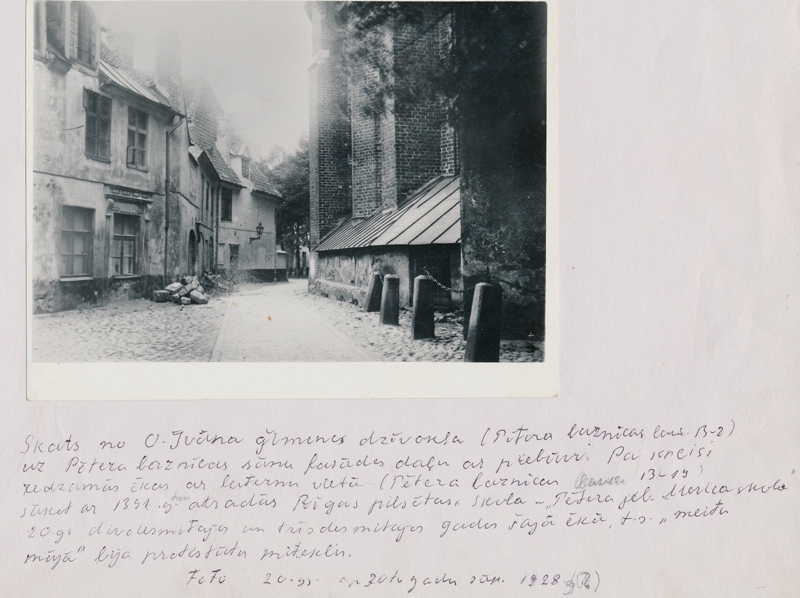 Skats no O. Ivāna ģimenes dzīvokļa (Pētera baznīcas 13-2)
uz Pētera baznīcas sānu fasādes daļu ar piebūvi. Pa kreisi
redzamās ēkas ar laternu vietā (Pētera baznīcas 13-19)
sākot ar 1391. g. atradās Rīgas pilsētas skola - „Pētera jeb skola"
20.gs divdesmitajos un trīsdesmitajos gados šajā ēkā, t.s. „meitu
mājā" bija protestantu mīteklis.
Foto 20.gs. 20to gadu 1928. (?)